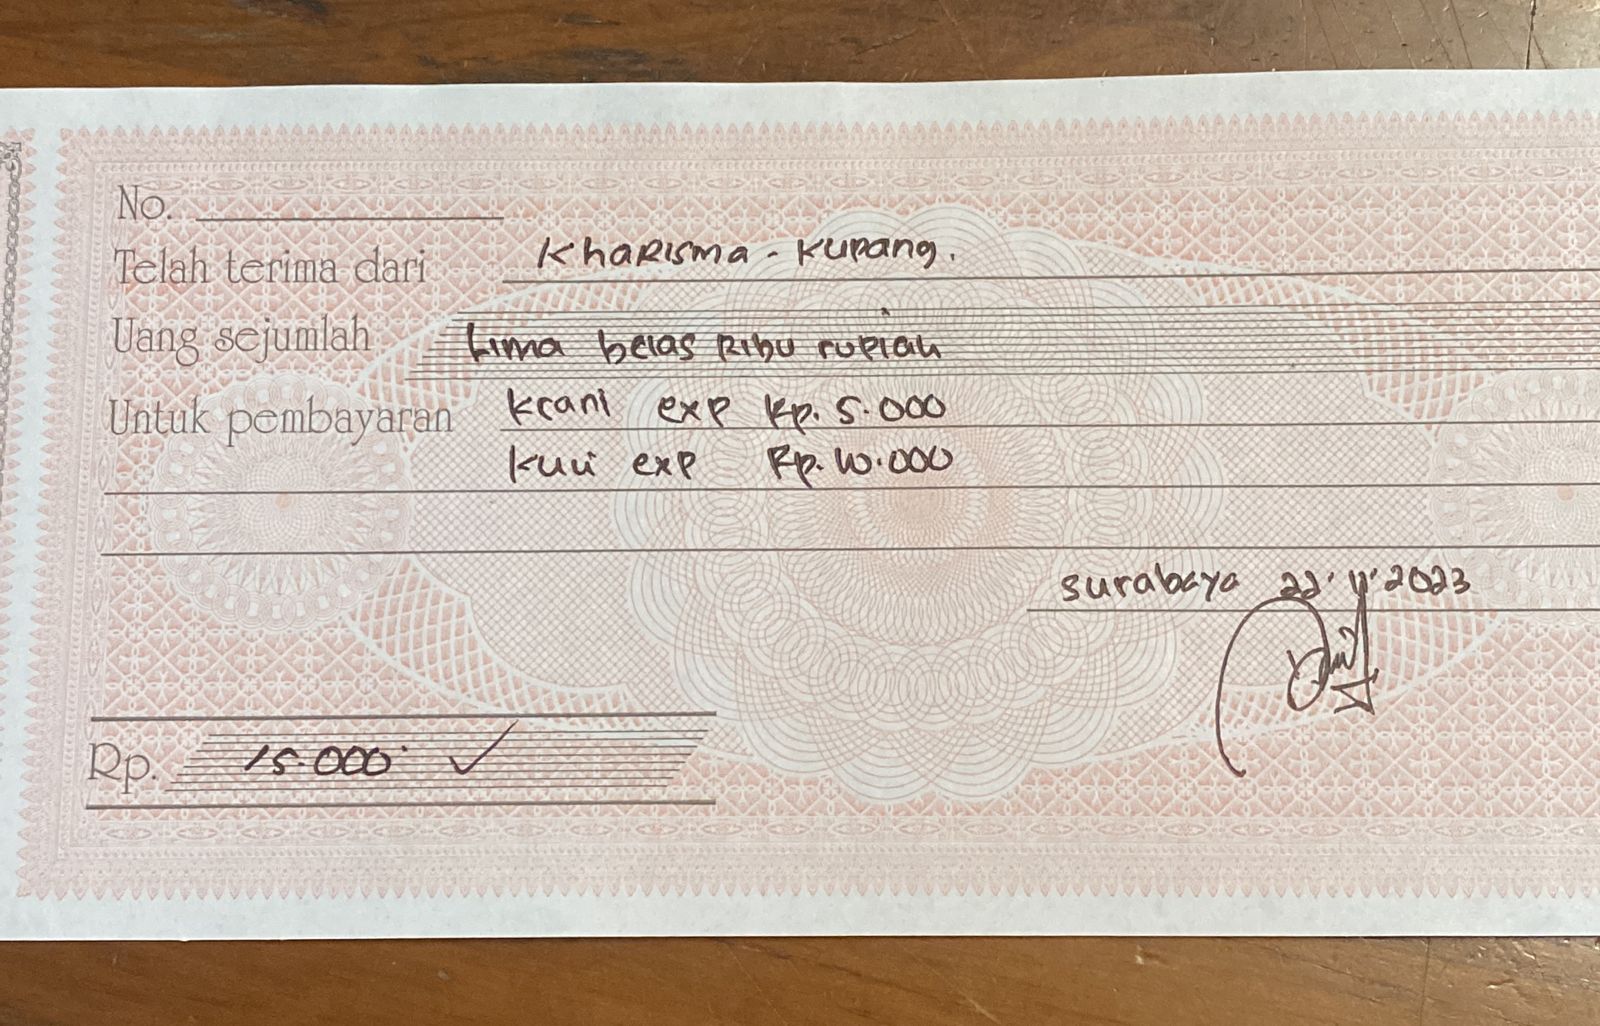 No.
Telah terima dari Kharisma - Kupang.
Uang sejumlah Lima belas Ribu rupiah
Untuk pembayaran Krani exp Rp. 5.000
Kuli exp Rp. 10.000
Surabaya 22'11'2023
Rp. 15.000